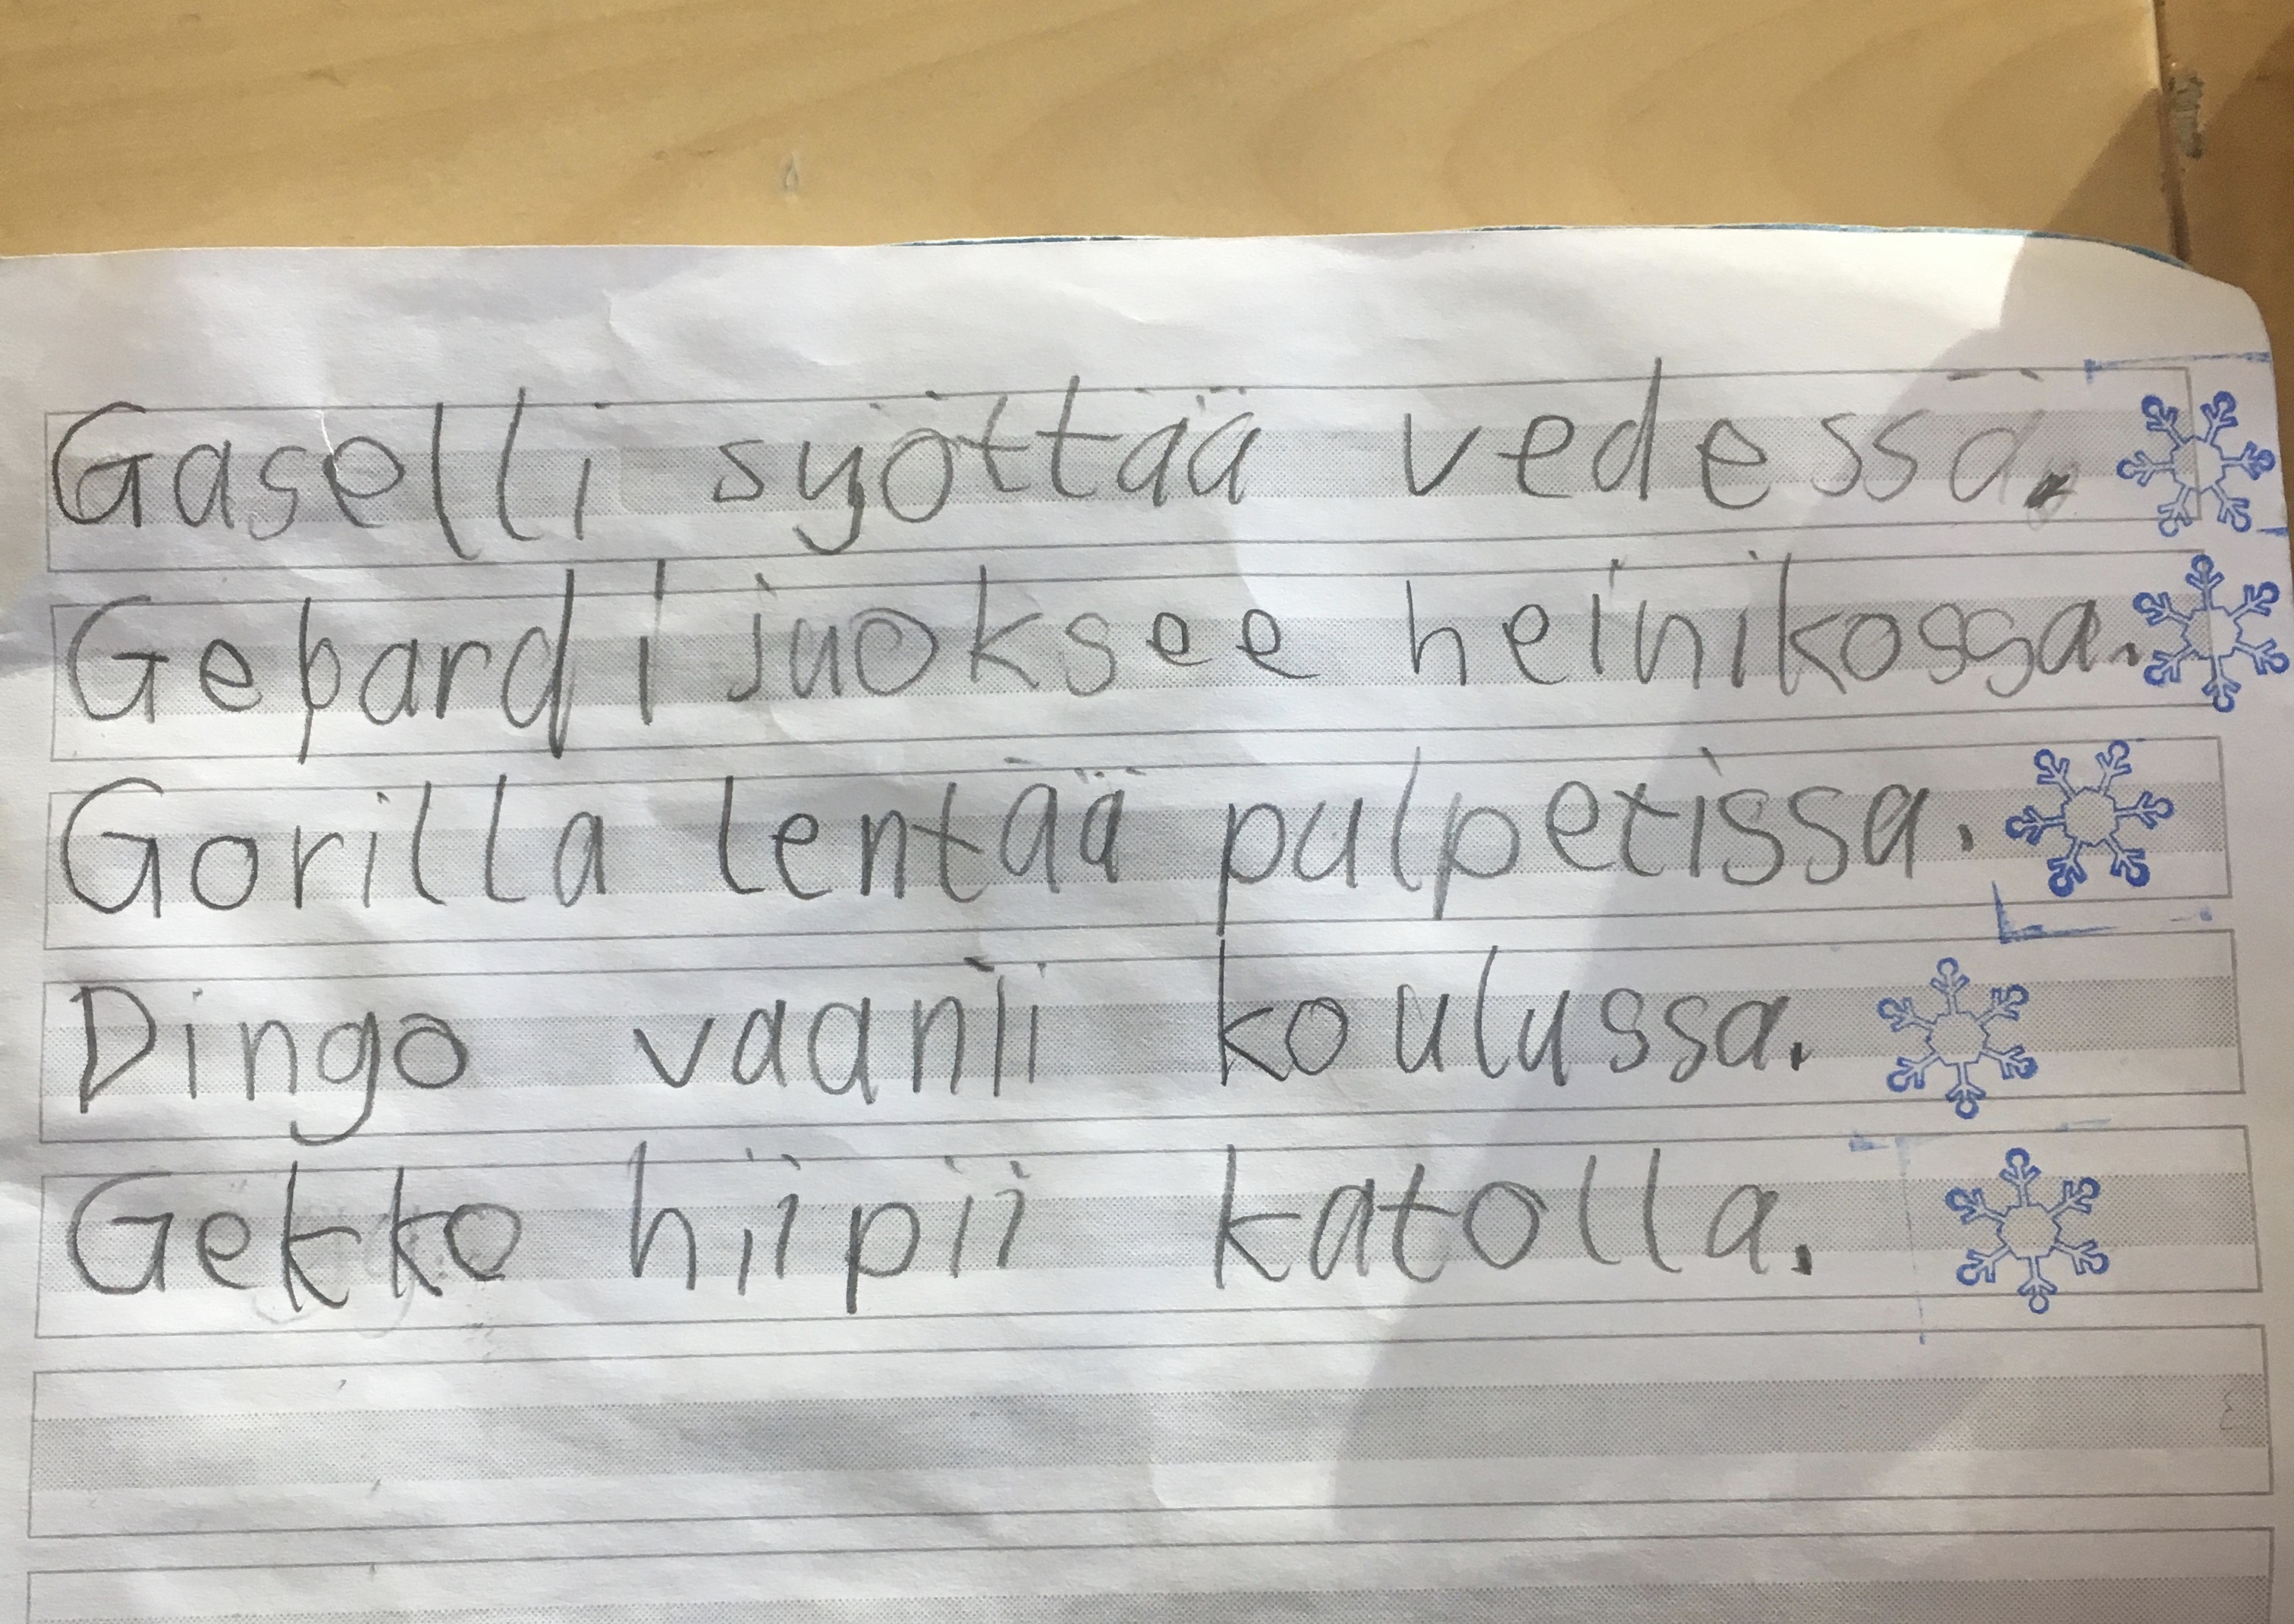 Gaselli syöttää vedessä.
Gepardi juoksee heinikossa.
Gorilla lentää pulpetissa.
Dingo vaanii koulussa.
Gekko hiipii katolla.